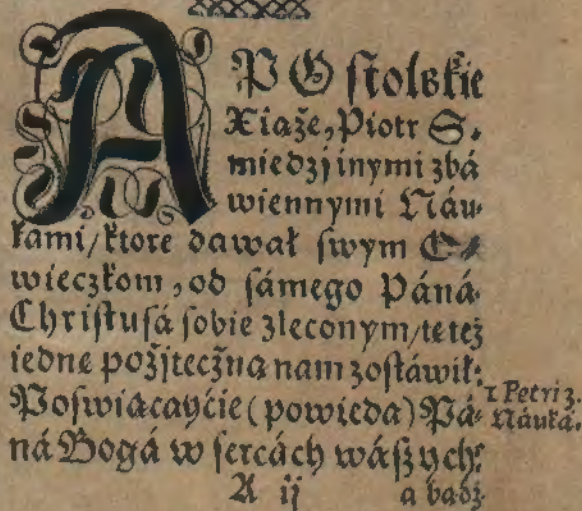 APOstolskie
Xiąże, Piotr S.
miedzj inymi zbá
wiennymi Náu-
kami/ ktore dawał swym O-
wieczkom, od sámego Páná
Christusá sobie zleconym/ tę też
iednę pożjteczną nam zostáwił:
Poswiącayćie (powieda) Pá-
ná Bogá w sercách wászych:
1 Petri 3.
Náuká.
A ij
a bądz